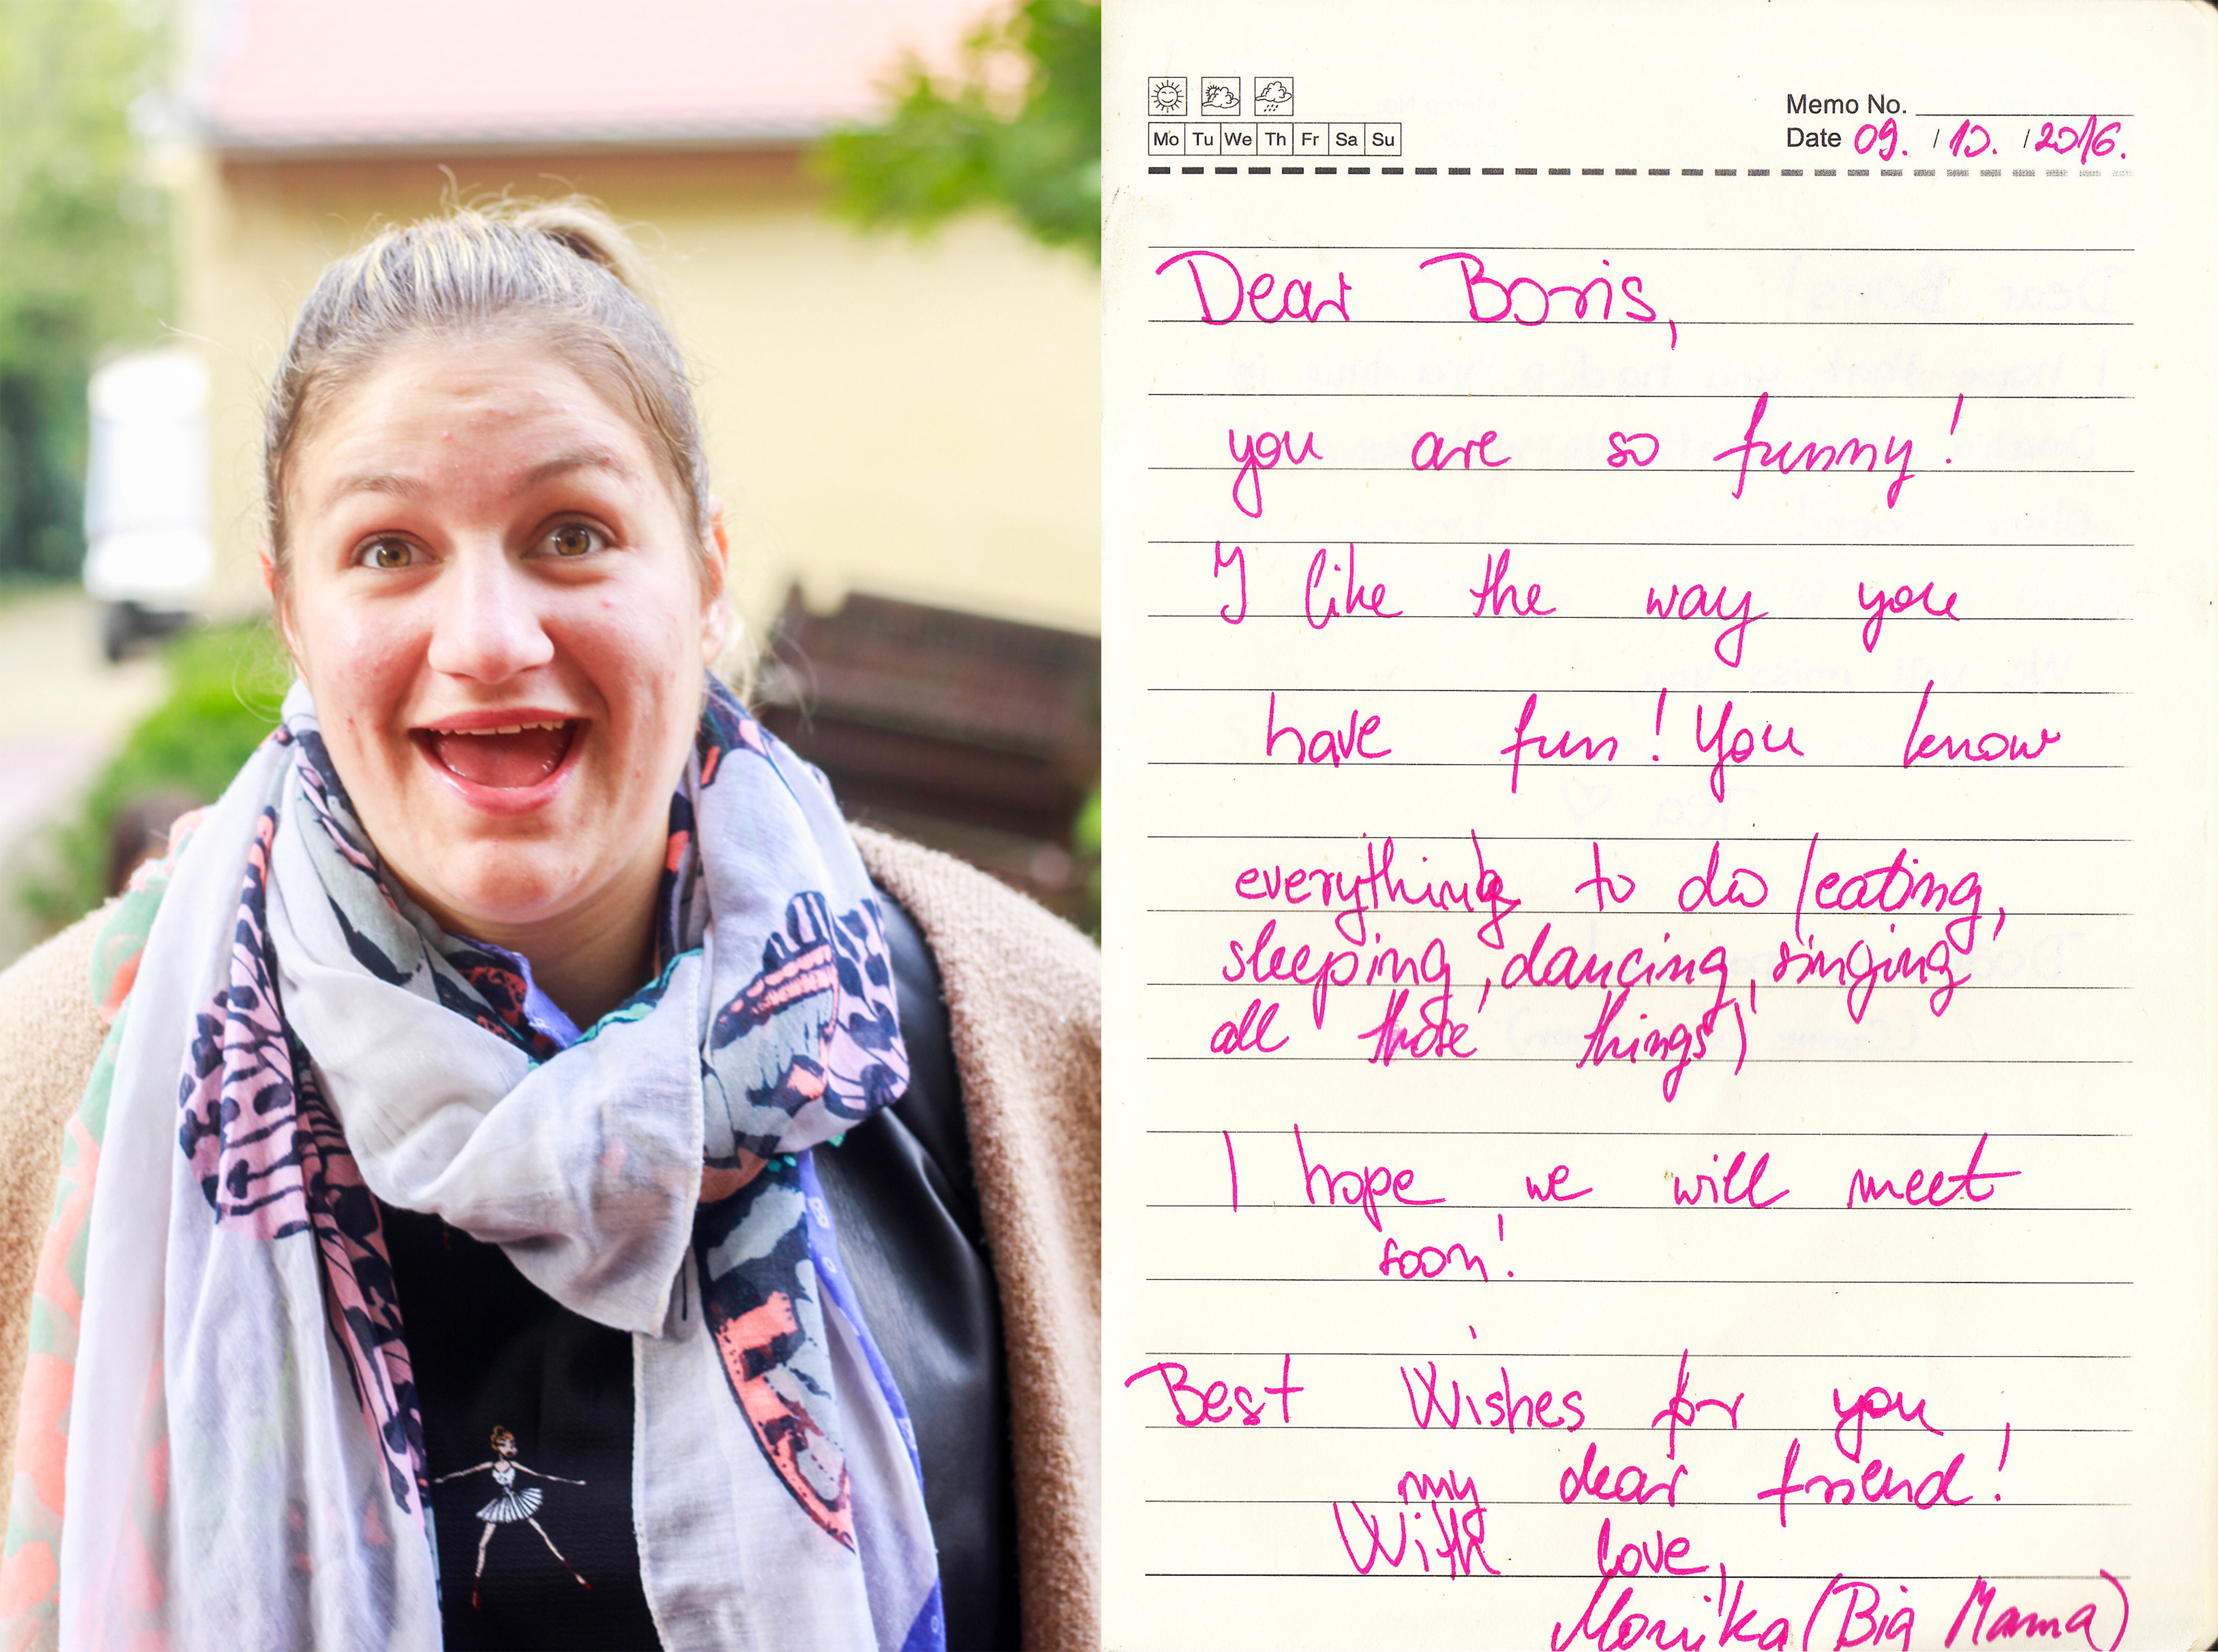 Memo No.
Mo Tu We Th Fr Sa Su
Date 09. / 10. / 2016.
Dear Boris,
you are so funny!
I like the way you
have fun! You know
everything to do (eating,
sleeping, dancing, singing
all those things)
I hope we will meet
soon!
Best Wishes for you
my dear friend!
With love,
Monika (Big Mama)